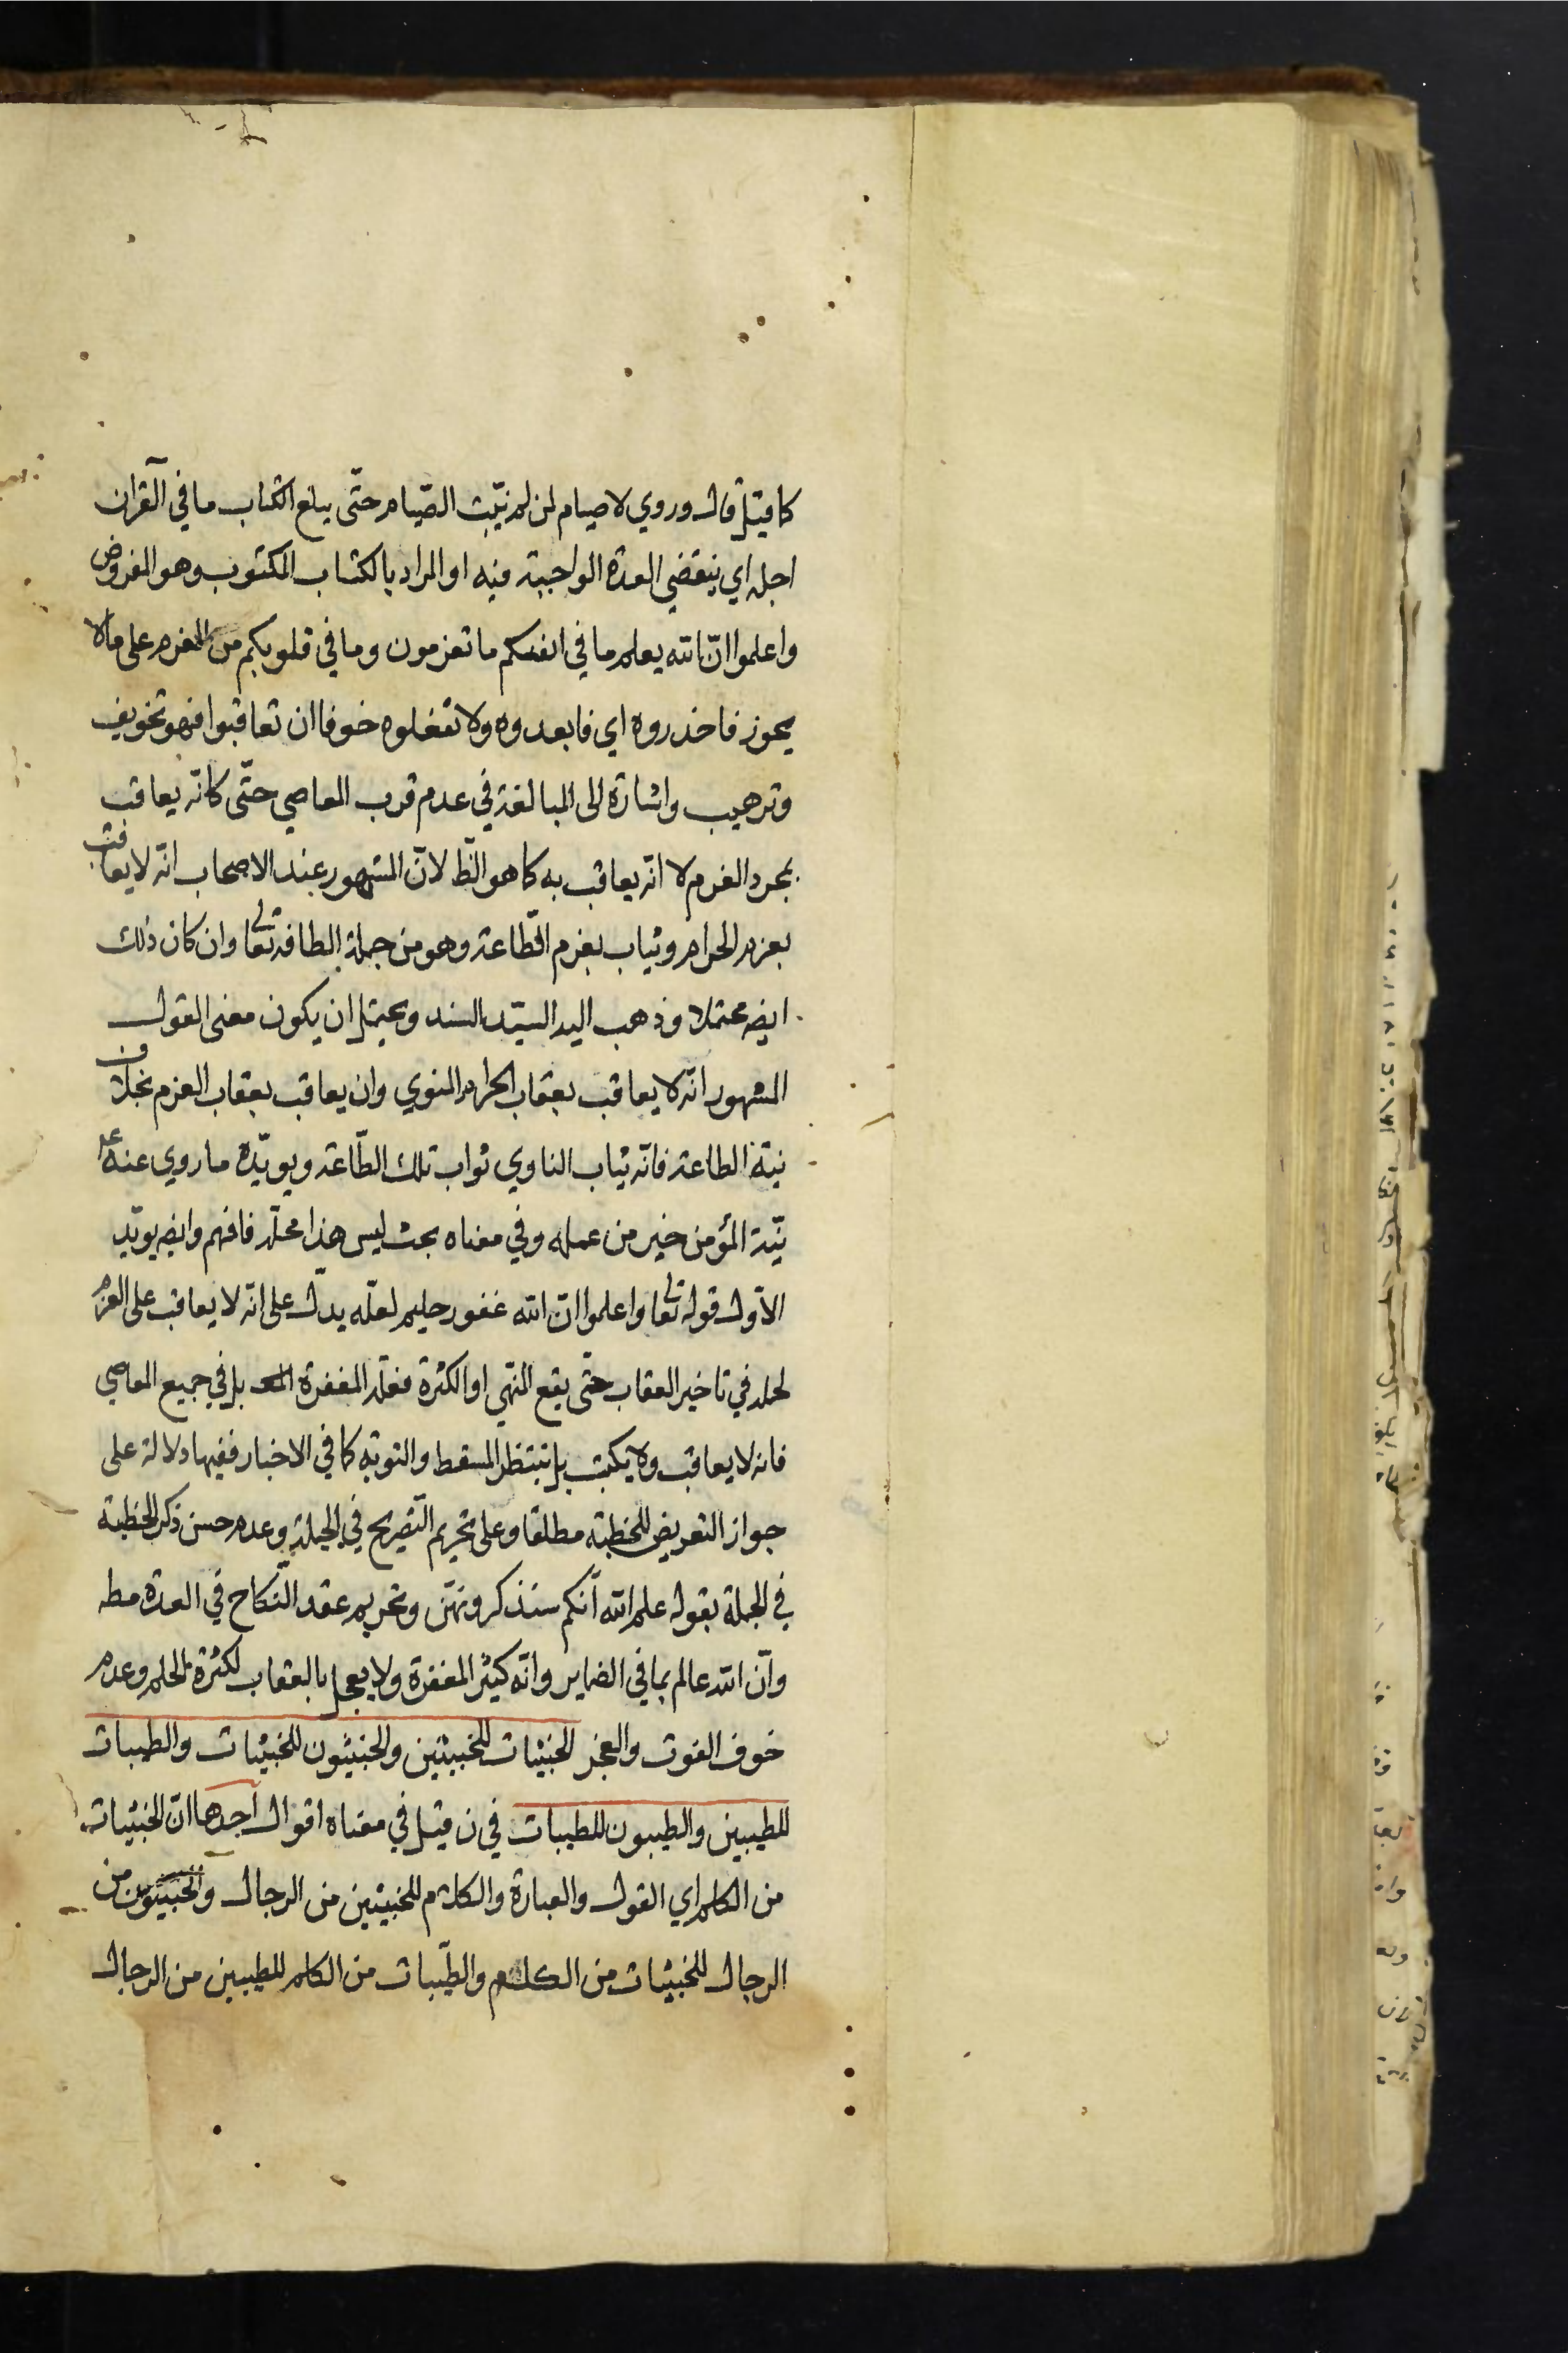 كما قيل قال وروي لا صيام لمن لم يبيّت الصّيام حتّى يبلغ الكتاب ما في القرآن
اجله اي ينقضي العدة الواجبة فيه او المراد بالكتاب المكتوب وهو المفروض
واعلموا انّ الله يعلم ما في انفسكم ما تعزمون وما في قلوبكم من العزم على ما لا
يجوز فاحذروه اي فابعدوه ولا تفعلوه خوفا ان تعاقبوا فهو تخويف
وترهيب واشارة الى المبالغة في عدم قرب المعاصي حتّى كانّه يعاقب
بمجرد العزم لا انّه يعاقب به كما هو الظّ لانّ المشهور عند الاصحاب انّه لا يعاقب
بعزم الحرام ويثاب بعزم الطّاعة وهو من جملة الطافه تعالى وان كان ذلك
ايضه محتملا وذهب اليه السيّد السند ويحتمل ان يكون معنى القول
المشهور انّه لا يعاقب بعقاب الحرام المنوي وان يعاقب بعقاب العزم بخلاف
نيّة الطاعة فانّه يثاب الناوي ثواب تلك الطّاعة ويويّده ما روي عنه ع
نيّة المؤمن خير من عمله وفي معناه بحث ليس هذا محلّه فافهم وايضه يويّد
الاوّل قوله تعالى واعلموا انّ الله غفور حليم لعلّه يدلّ على انّه لا يعاقب على العزم
لحلمه في تاخير العقاب حتّى يقع النّهي او الكثرة فعلّة المغفرة بل في جميع المعاصي
فانه لا يعاقب ولا يكتب بل ينتظر المسقط والتوبة كما في الاخبار ففيها دلالة على
جواز التعريض للخطبة مطلقا وعلى تحريم التّصريح في الجملة وعدم حسن ذكر الخطبة
في الجملة بقوله علم الله انّكم ستذكرونهنّ وتحريم عقد النّكاح في العدة مطه
وانّ الله عالم بما في الضماير وانّه كثير المغفرة ولا يعجل بالعقاب لكثرة الحلم وعدم
خوف الفوت والعجز الخبيثات للخبيثين والخبيثون للخبيثات والطيبات
للطيبين والطيبون للطيبات في ن قيل في معناه اقوال احدها انّ الخبيثات
من الكلم اي القول والعبارة والكلام للخبيثين من الرجال والخبيثون من
الرجال للخبيثات من الكلام والطّيبات من الكلم للطيبين من الرجال